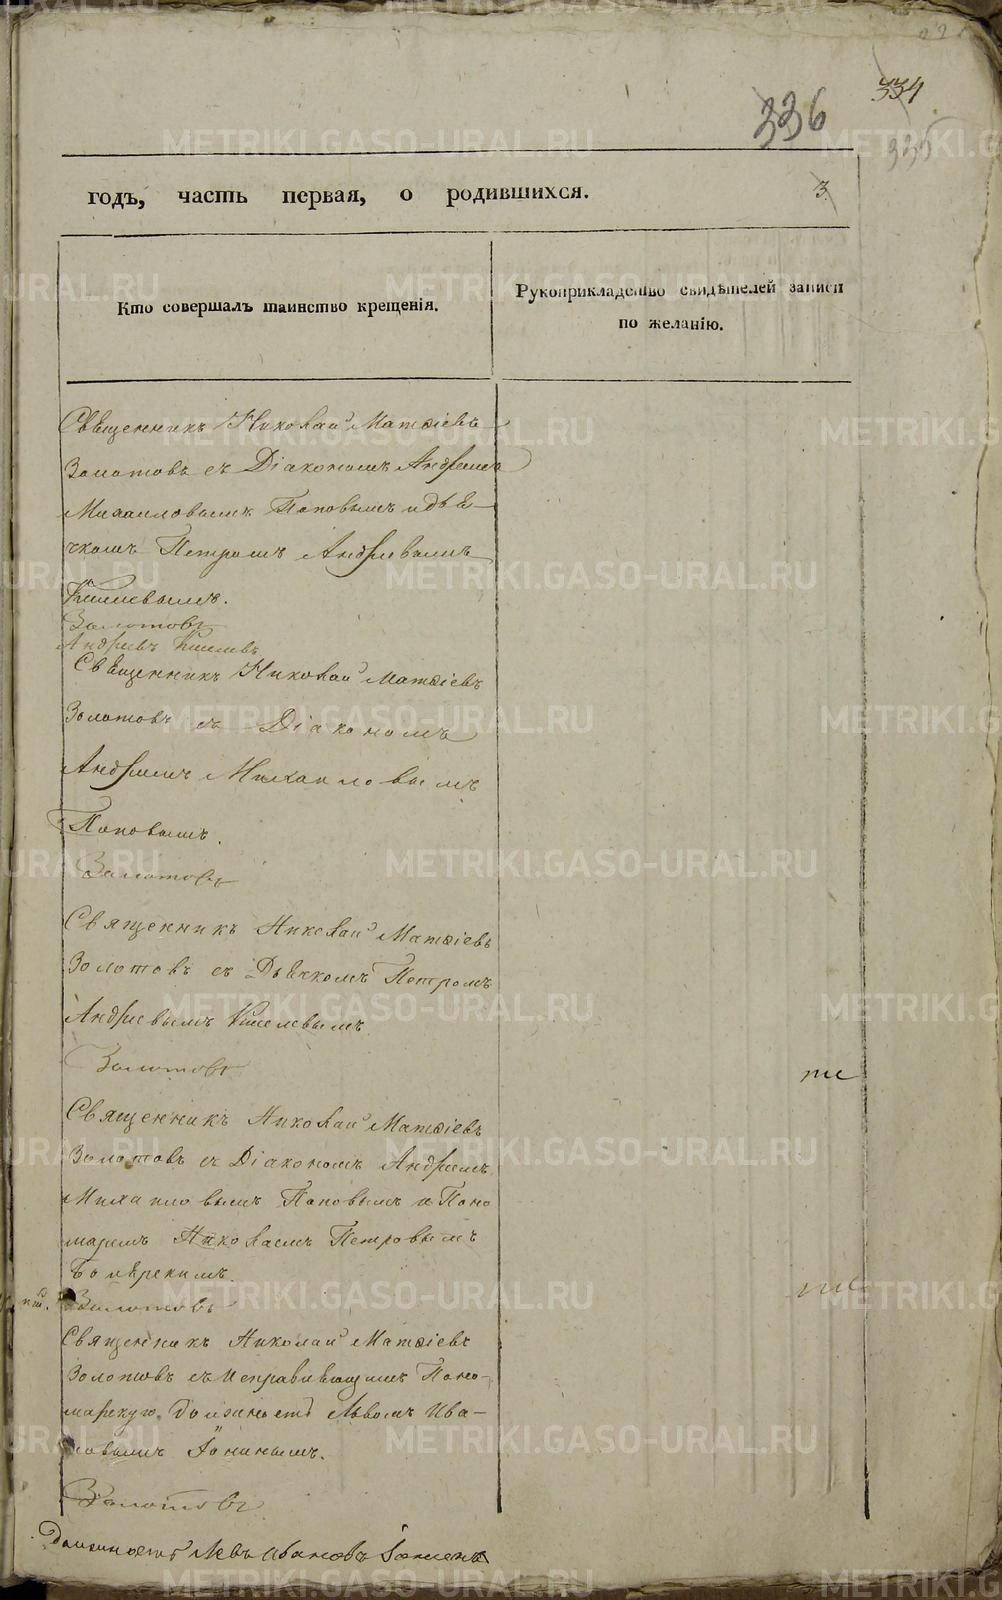 334
336
335
годъ, часть первая, о родившихся. 3
Кто совершалъ таинство крещенія.
Рукоприкладство свидѣтелей записи
по желанію.
Священникъ Николай Матѳіевъ
Золотовъ съ Діакономъ Андреемъ
Михаиловымъ Поповымъ и дья-
чкомъ Петромъ Андреевымъ
Киселевымъ.
Золотовъ
Андреевъ Киселевъ
Священникъ Николай Матѳіевъ
Золотовъ съ Діакономъ
Андреемъ Михаиловымъ
Поповымъ.
Золотовъ
Священникъ Николай Матѳіевъ
Золотовъ съ Дьячкомъ Петромъ
Андреевымъ Киселевымъ
Золотовъ
Священникъ Николай Матѳіевъ
Золотовъ съ Діакономъ Андреемъ
Михаиловымъ Поповымъ и Поно
маремъ Николаемъ Петровымъ
Боярскимъ.
Золотовъ
Священникъ Николай Матѳіевъ
Золотовъ съ исправляющимъ Поно-
марскую должность Львомъ Ива-
новымъ
Золотовъ
должность Левъ Ивановъ
METRIKI.GASO-URAL.RU